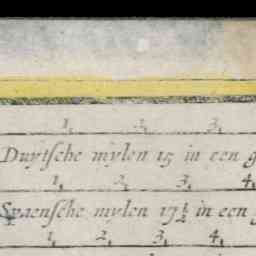 1. 2. 3.
Duytsche mylen 15 in een g
1. 2. 3. 4.
Spaensche mylen 17½ in een
1. 2. 3. 4.